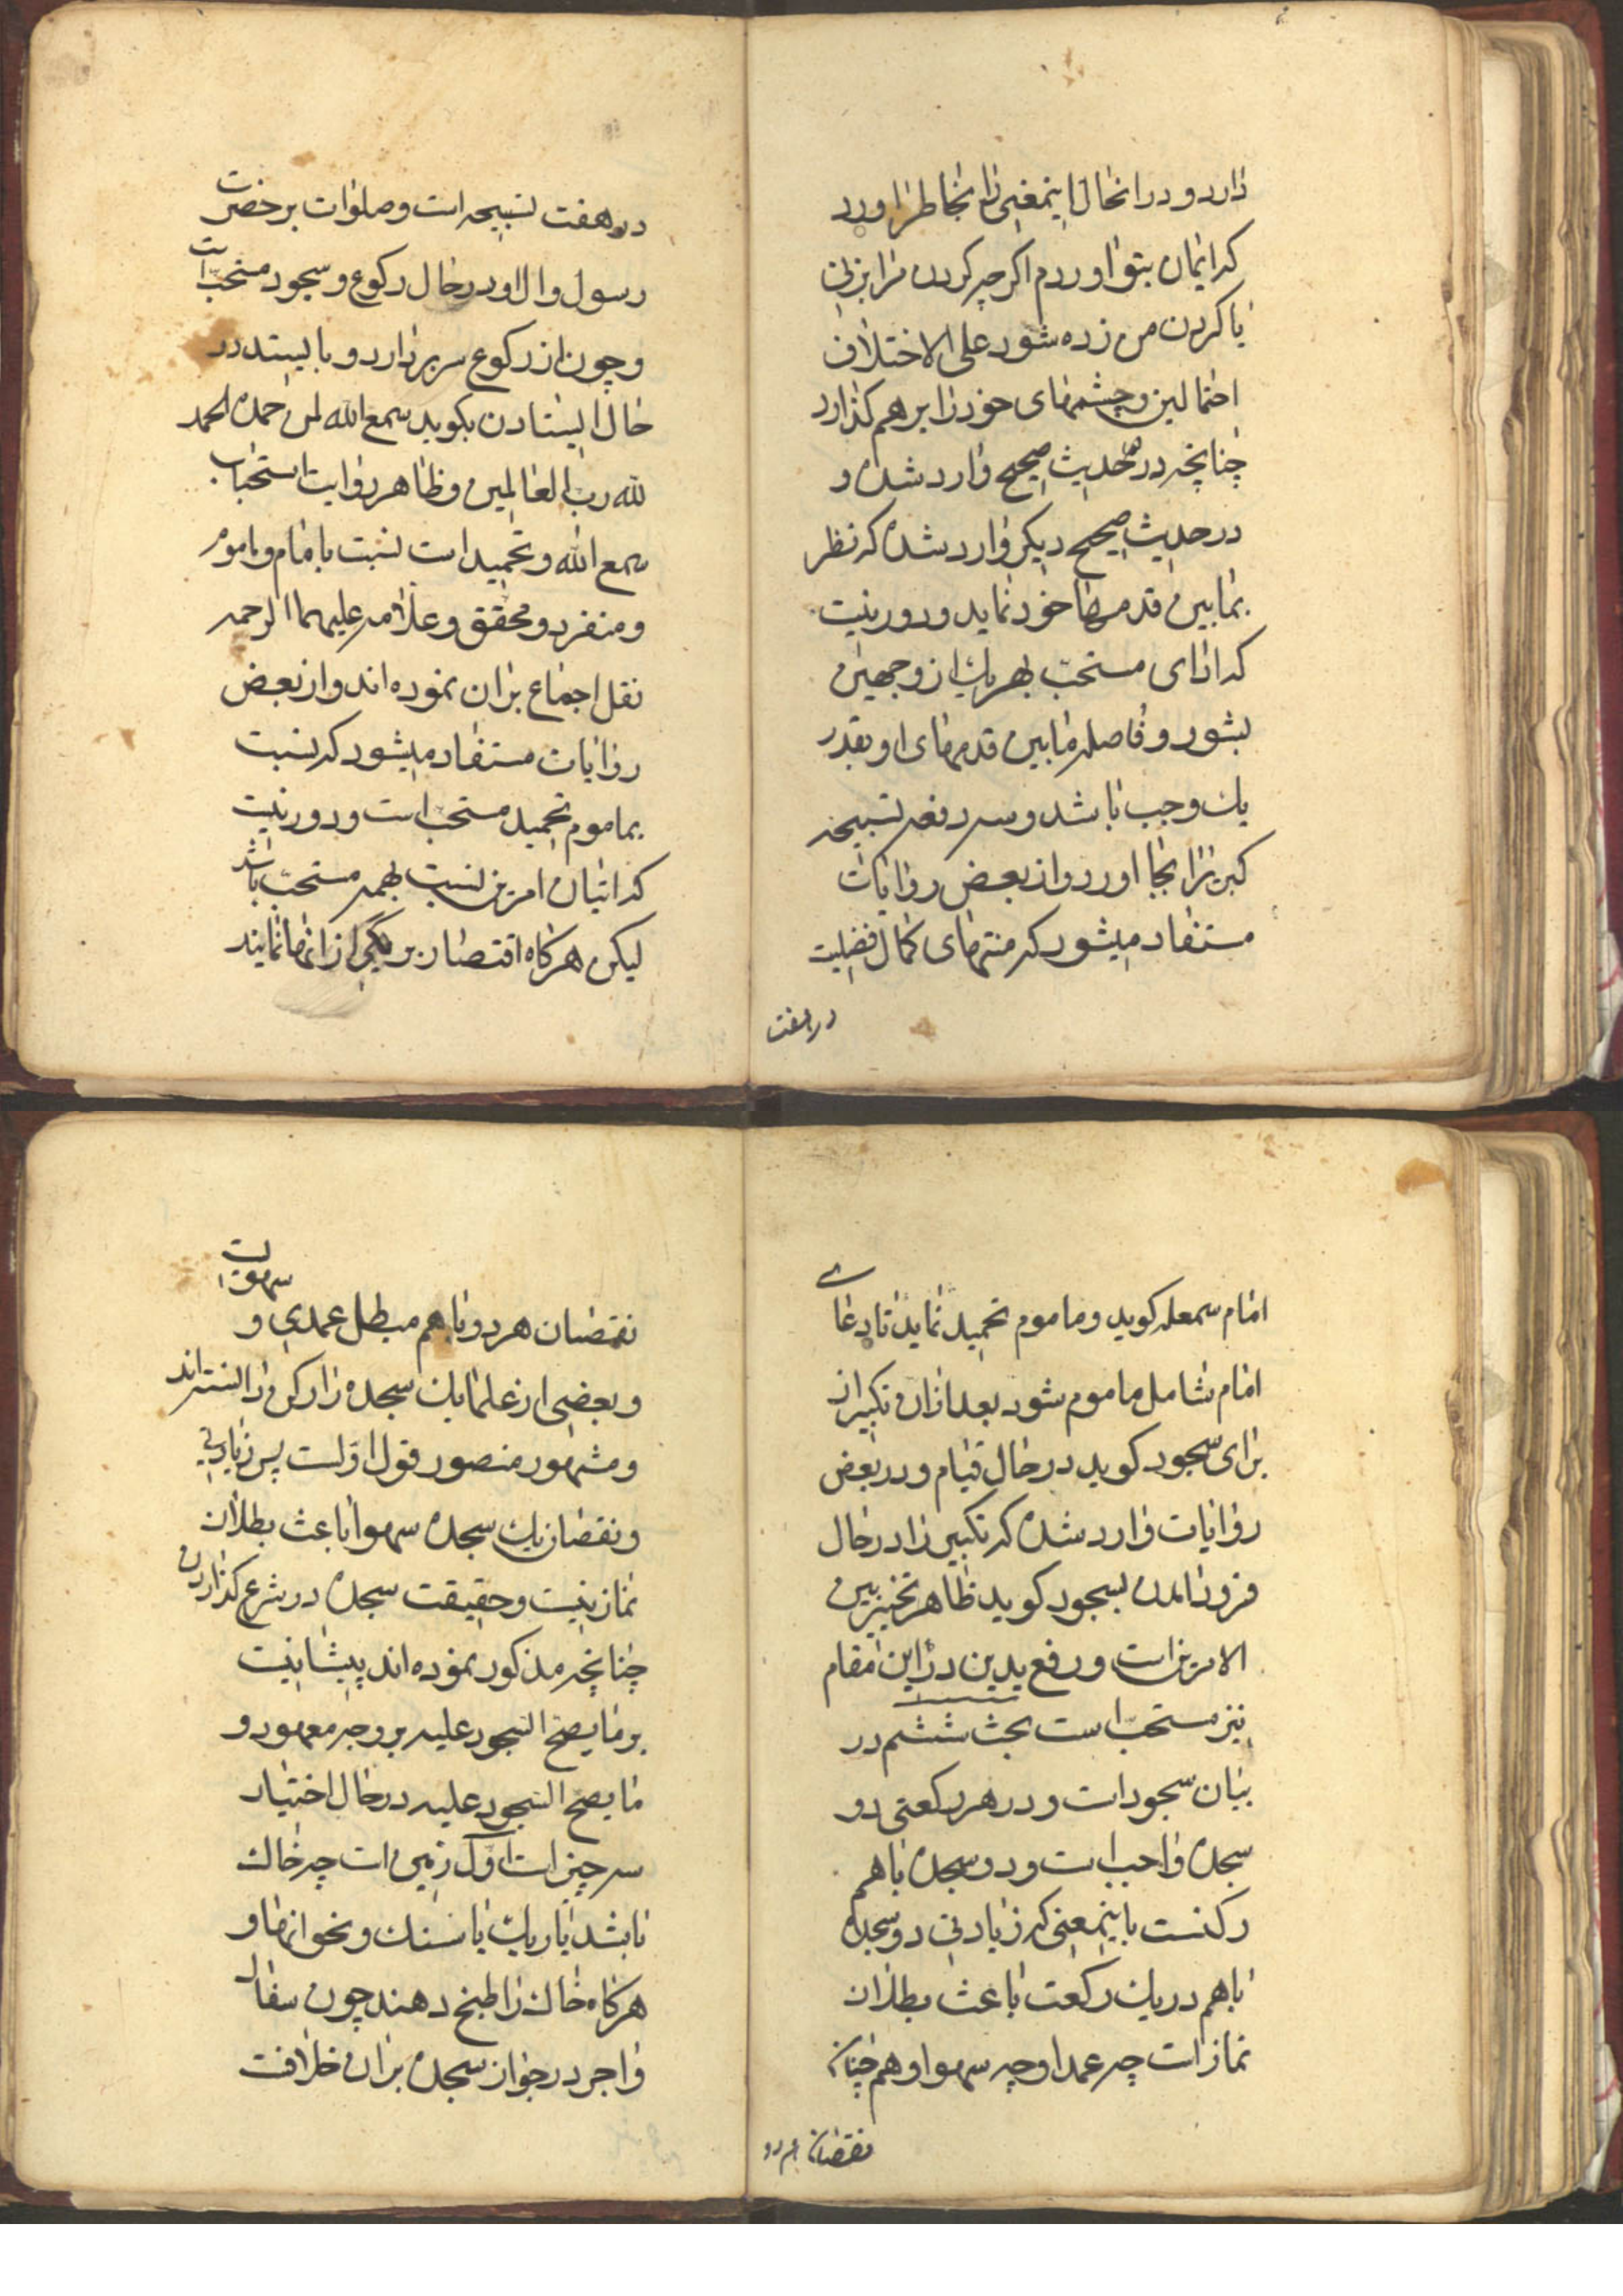 دارد و در انحال اینمعنی را بخاطر اورد
که ایمان بتو اوردم اکرچه کردن مرا بزنی
یا کردن من زده شود علی الاختلاف
احتمالین و چشمهای خود را بر هم کذارد
چنانچه در حدیث صحیح وارد شده و
در حدیث صحیح دیکر وارد شده که نظر
بمابین قدمهای خود نماید و دور نیست
که ادای مستحب بهر یک از وجهین
بشود و فاصله مابین قدمهای او بقدر
یک وجب باشد و سه دفعه تسبیحه
کبری را بجا اورد و از بعض روایات
مستفاد میشود که منتهای کمال فضلیت
در هفت
در هفت تسبیحه است و صلوات بر حضرت
رسول و ال او در حال رکوع و سجود مستحب است
و چون از رکوع سر بردارد و بایستد در
حال ایستادن بکوید سمع الله لمن حمده الحمد
لله رب العالمین و ظاهر روایت استحباب
سمع الله و تحمید است نسبت بامام و ماموم
و منفرد و محقق و علامه علیهما الرحمه
نقل اجماع بران نموده اند و از بعض
روایات مستفاد میشود که نسبت
بماموم تحمید مستحب است و دور نیست
که اتیان امرین نسبت بهمه مستحب باشد
لیکن هرکاه اقتصار بر یکی از انها نمایند
امام سمعله کوید و ماموم تحمید نماید تا دعای
امام شامل ماموم شود بعد ازان تکبیر از
برای سجود کوید در حال قیام و در بعض
روایات وارد شده که تکبیر را در حال
فرود امدن بسجود کوید ظاهر تخییر بین
الامرین است و رفع یدین در این مقام
نیز مستحب است بحث ششم در
بیان سجود است و در هر رکعتی دو
سجده واجب است و دو سجده با هم
رکنست باینمعنی که زیادتی دو سجده
با هم در یک رکعت باعث بطلان
نماز است چه عمدا و چه سهوا و هم چنان
نقصان هر دو
نقصان هر دو با هم مبطل عمدی و سهویست
و بعضی از علما یک سجده را رکن دانسته اند
و مشهور منصور قول اولست پس زیادتی
و نقصان یک سجده سهوا باعث بطلان
نماز نیست و حقیقت سجده در شرع کذاردن
چنانچه مذکور نموده اند پیشانیست
بر ما یصح السجود علیه بر وجه معهود و
ما یصح السجود علیه در حال اختیار
سه چیز است اول زمین است چه خاک
باشد یا ریک یا سنک و نحو انها و
هرکاه خاک را طبخ دهند چون سفال
و اجر در جواز سجده بران خلافت